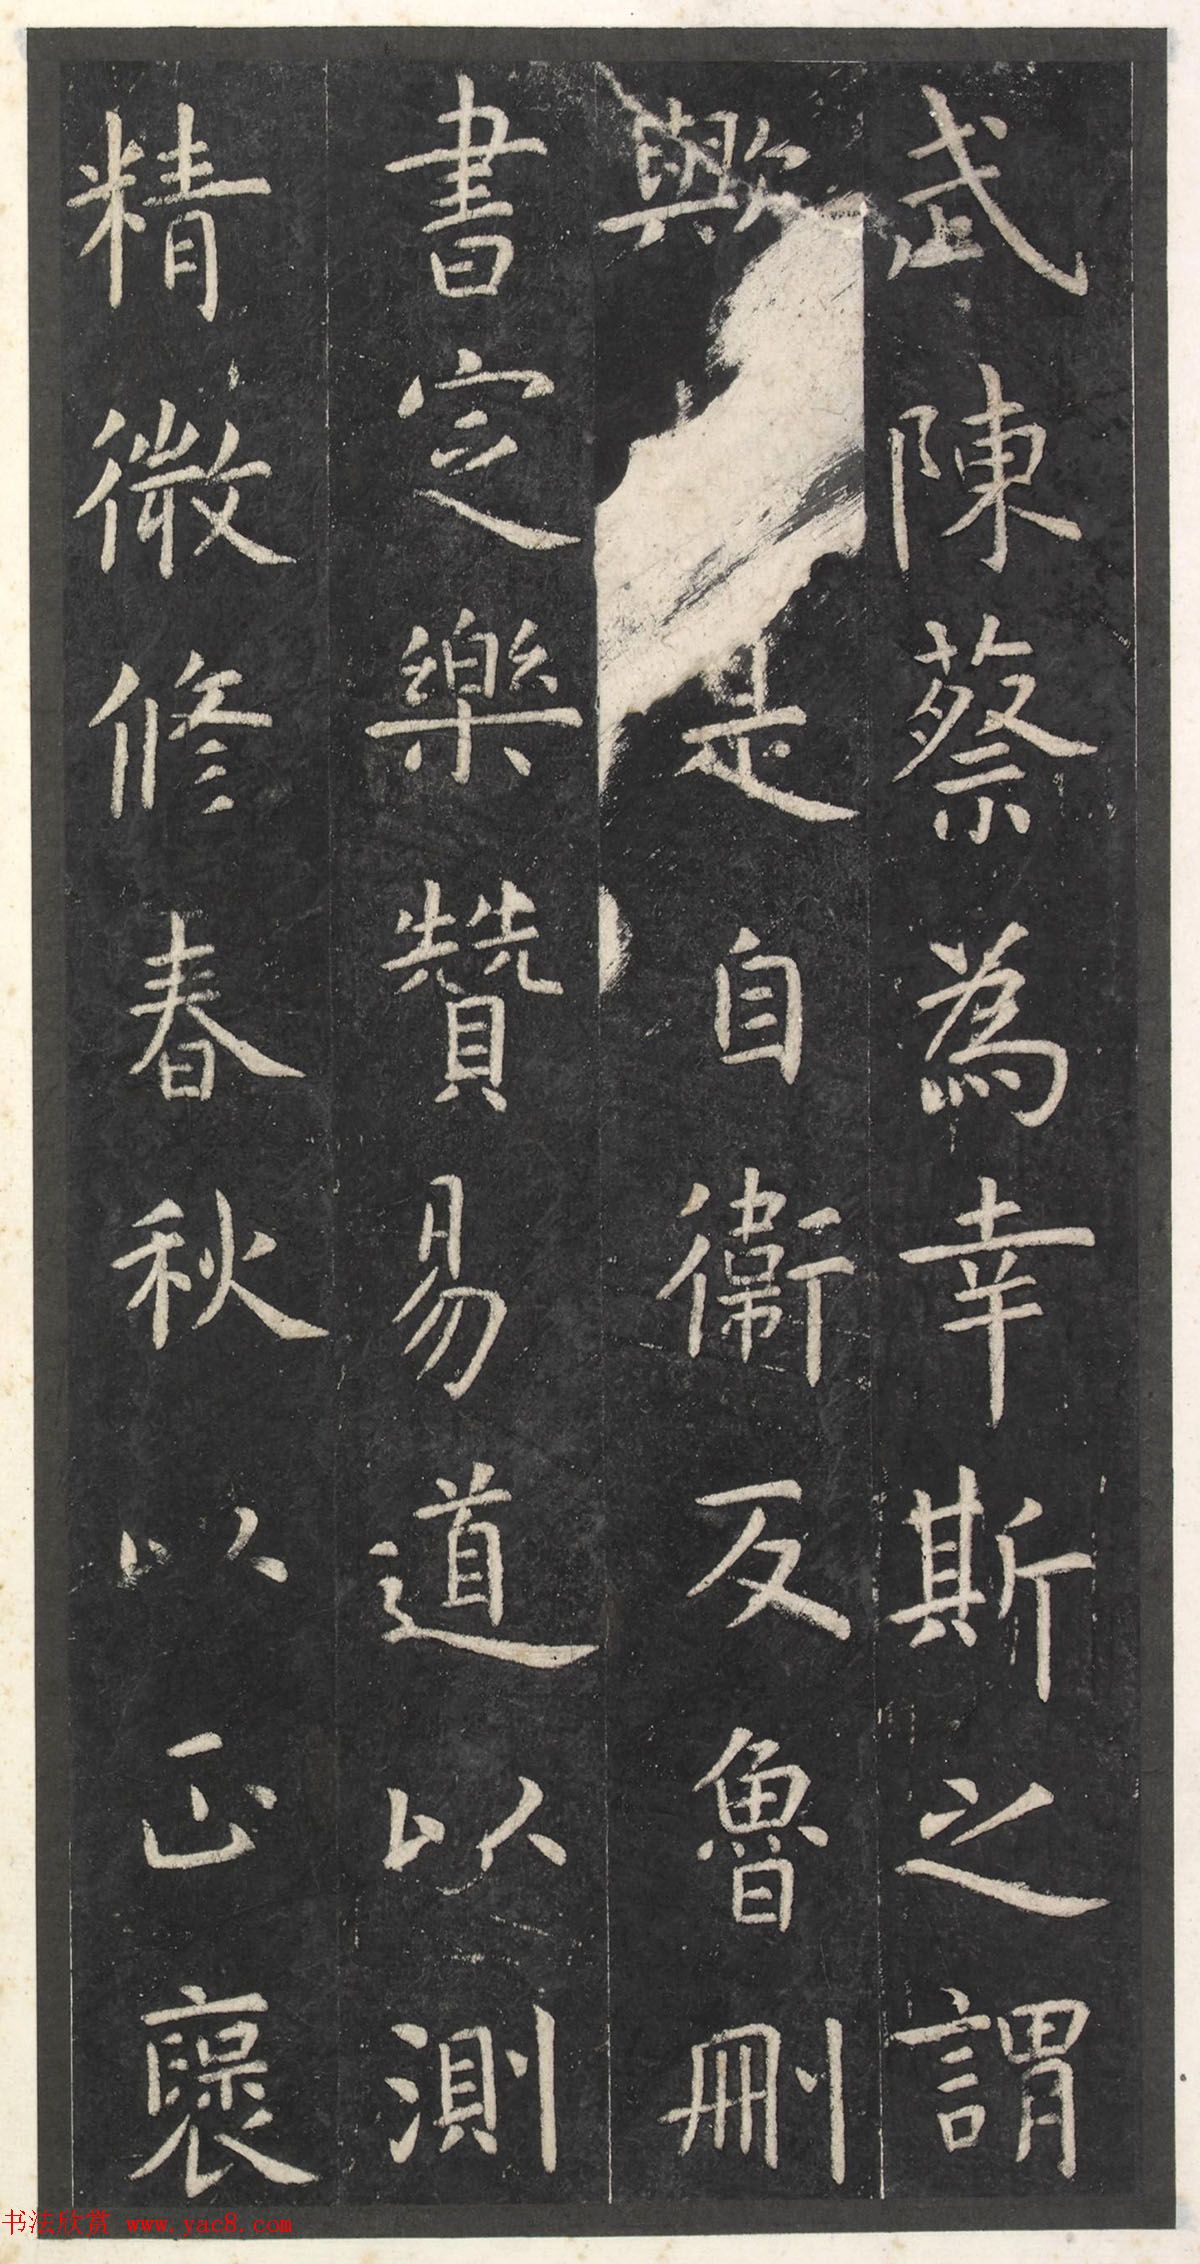 式陳蔡為幸斯之謂
歟是自衛反魯刪
書定樂贊易道以測
精微修春秋以正褒
书法欣赏 www.yac8.com